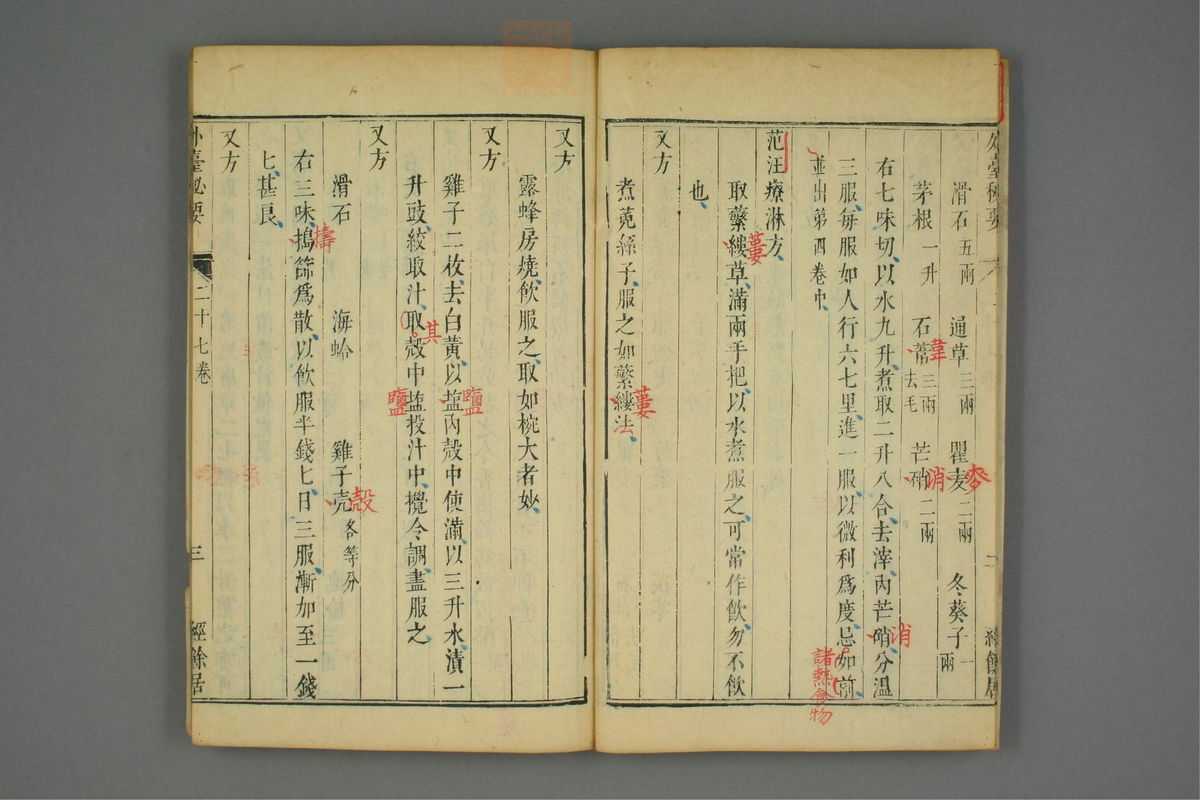 外臺秘要
二
經餘居
滑石五兩　通草三兩　瞿麦二兩　冬葵子一兩
麥
茅根一升　石䔭三兩去毛　芒硝二兩
韋
消
右七味切以水九升煮取二升八合去滓內芒硝分溫
消
三服每服如人行六七里進一服以微利爲度忌如前
諸熱食物
並出第四卷中
范汪療淋方
取蘩縷草滿兩手把以水煮服之可常作飲勿不飲
蔞
也
又方
煮菟絲子服之如蘩縷法
蔞
又方
露蜂房燒飲服之取如椀大者妙
又方
雞子二枚去白黃以塩內殼中使滿以三升水漬一
鹽
升豉絞取汁取殼中塩投汁中攪令調盡服之
其
鹽
又方
滑石　海蛤　雞子壳各等分
殼
右三味搗篩爲散以飲服半錢七日三服漸加至一錢
擣
七甚良
又方
外臺秘要
二十七卷
三
經餘居